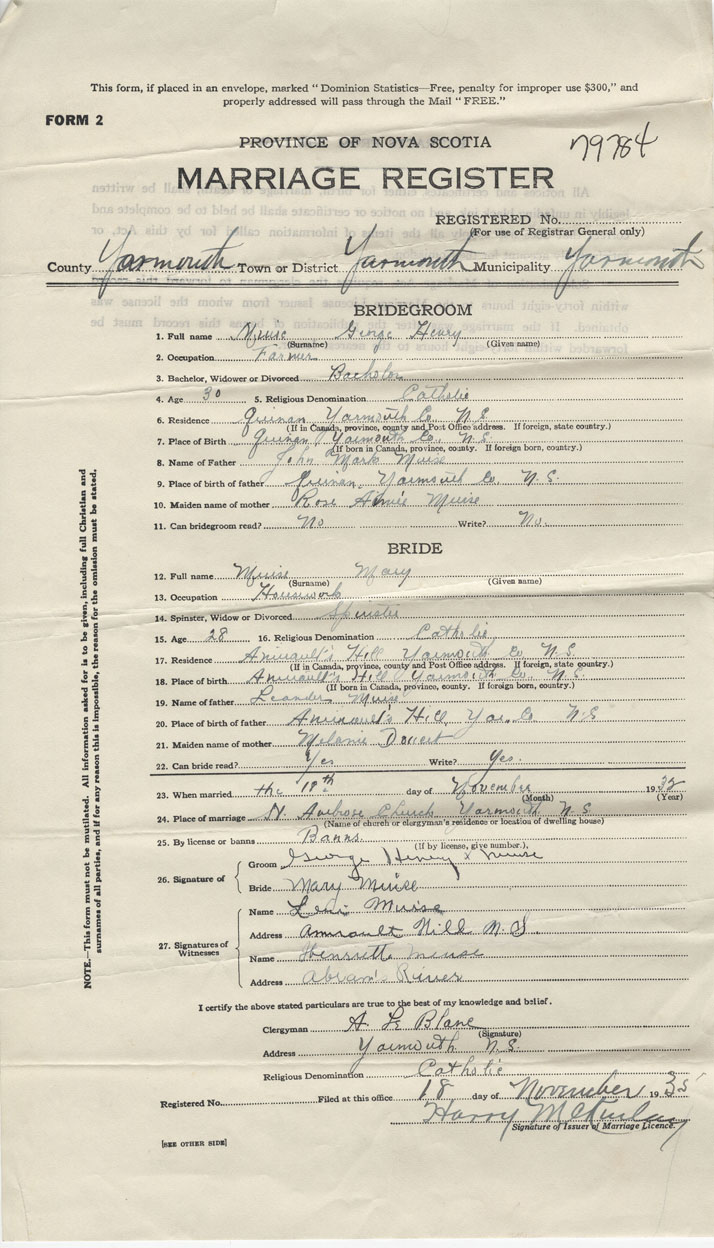 This form, if placed in an envelope, marked "Dominion Statistics—Free, penalty for improper use $300," and
properly addressed will pass through the Mail "FREE."
FORM 2
PROVINCE OF NOVA SCOTIA
79784
MARRIAGE REGISTER
REGISTERED No.
(For use of Registrar General only)
County Yarmouth Town or District Yarmouth Municipality Yarmouth
BRIDEGROOM
1. Full name Muise George Henry
(Surname) (Given name)
2. Occupation Farmer
3. Bachelor, Widower or Divorced Bachelor
4. Age 30 5. Religious Denomination Catholic
6. Residence Quinan Yarmouth Co. N.S.
(If in Canada, province, county and Post Office address. If foreign, state country.)
7. Place of Birth Quinan Yarmouth Co. N.S.
(If born in Canada, province, county. If foreign born, country.)
8. Name of Father John Mark Muise
9. Place of birth of father Quinan, Yarmouth Co. N.S.
10. Maiden name of mother Rose Annie Muise
11. Can bridegroom read? No Write? No.
BRIDE
12. Full name Muise Mary
(Surname) (Given name)
13. Occupation Housework
14. Spinster, Widow or Divorced Spinster
15. Age 28 16. Religious Denomination Catholic
17. Residence Amirault's Hill Yarmouth Co N.S.
(If in Canada, province, county and Post Office address. If foreign, state country.)
18. Place of birth Amirault's Hill Yarmouth Co. N.S
(If born in Canada, province, county. If foreign born, country.)
19. Name of father Leander Muise
20. Place of birth of father Amirault's Hill, Yar. Co N.S
21. Maiden name of mother Melanie Doucet
22. Can bride read? Yes Write? Yes.
23. When married the 18th day of November 19
(Month) (Year)
24. Place of marriage St. Ambrose Church Yarmouth N.S
(Name of church or clergyman's residence or location of dwelling house)
25. By license or banns Banns
(If by license, give number.)
26. Signature of
Groom George Henry x Muise
Bride Mary Muise
27. Signatures of Witnesses
Name Levi Muise
Address Amirault Hill N.S.
Name Henriette Muise
Address Abram's River
I certify the above stated particulars are true to the best of my knowledge and belief.
Clergyman A. Le Blanc
(Signature)
Address Yarmouth N.S.
Religious Denomination Catholic
Registered No. Filed at this office 18 day of November 19
Harry McKinlay
Signature of Issuer of Marriage Licence.
[SEE OTHER SIDE]
NOTE.—This form must not be mutilated. All information asked for is to be given, including full Christian and
surnames of all parties, and if for any reason this is impossible, the reason for the omission must be stated.